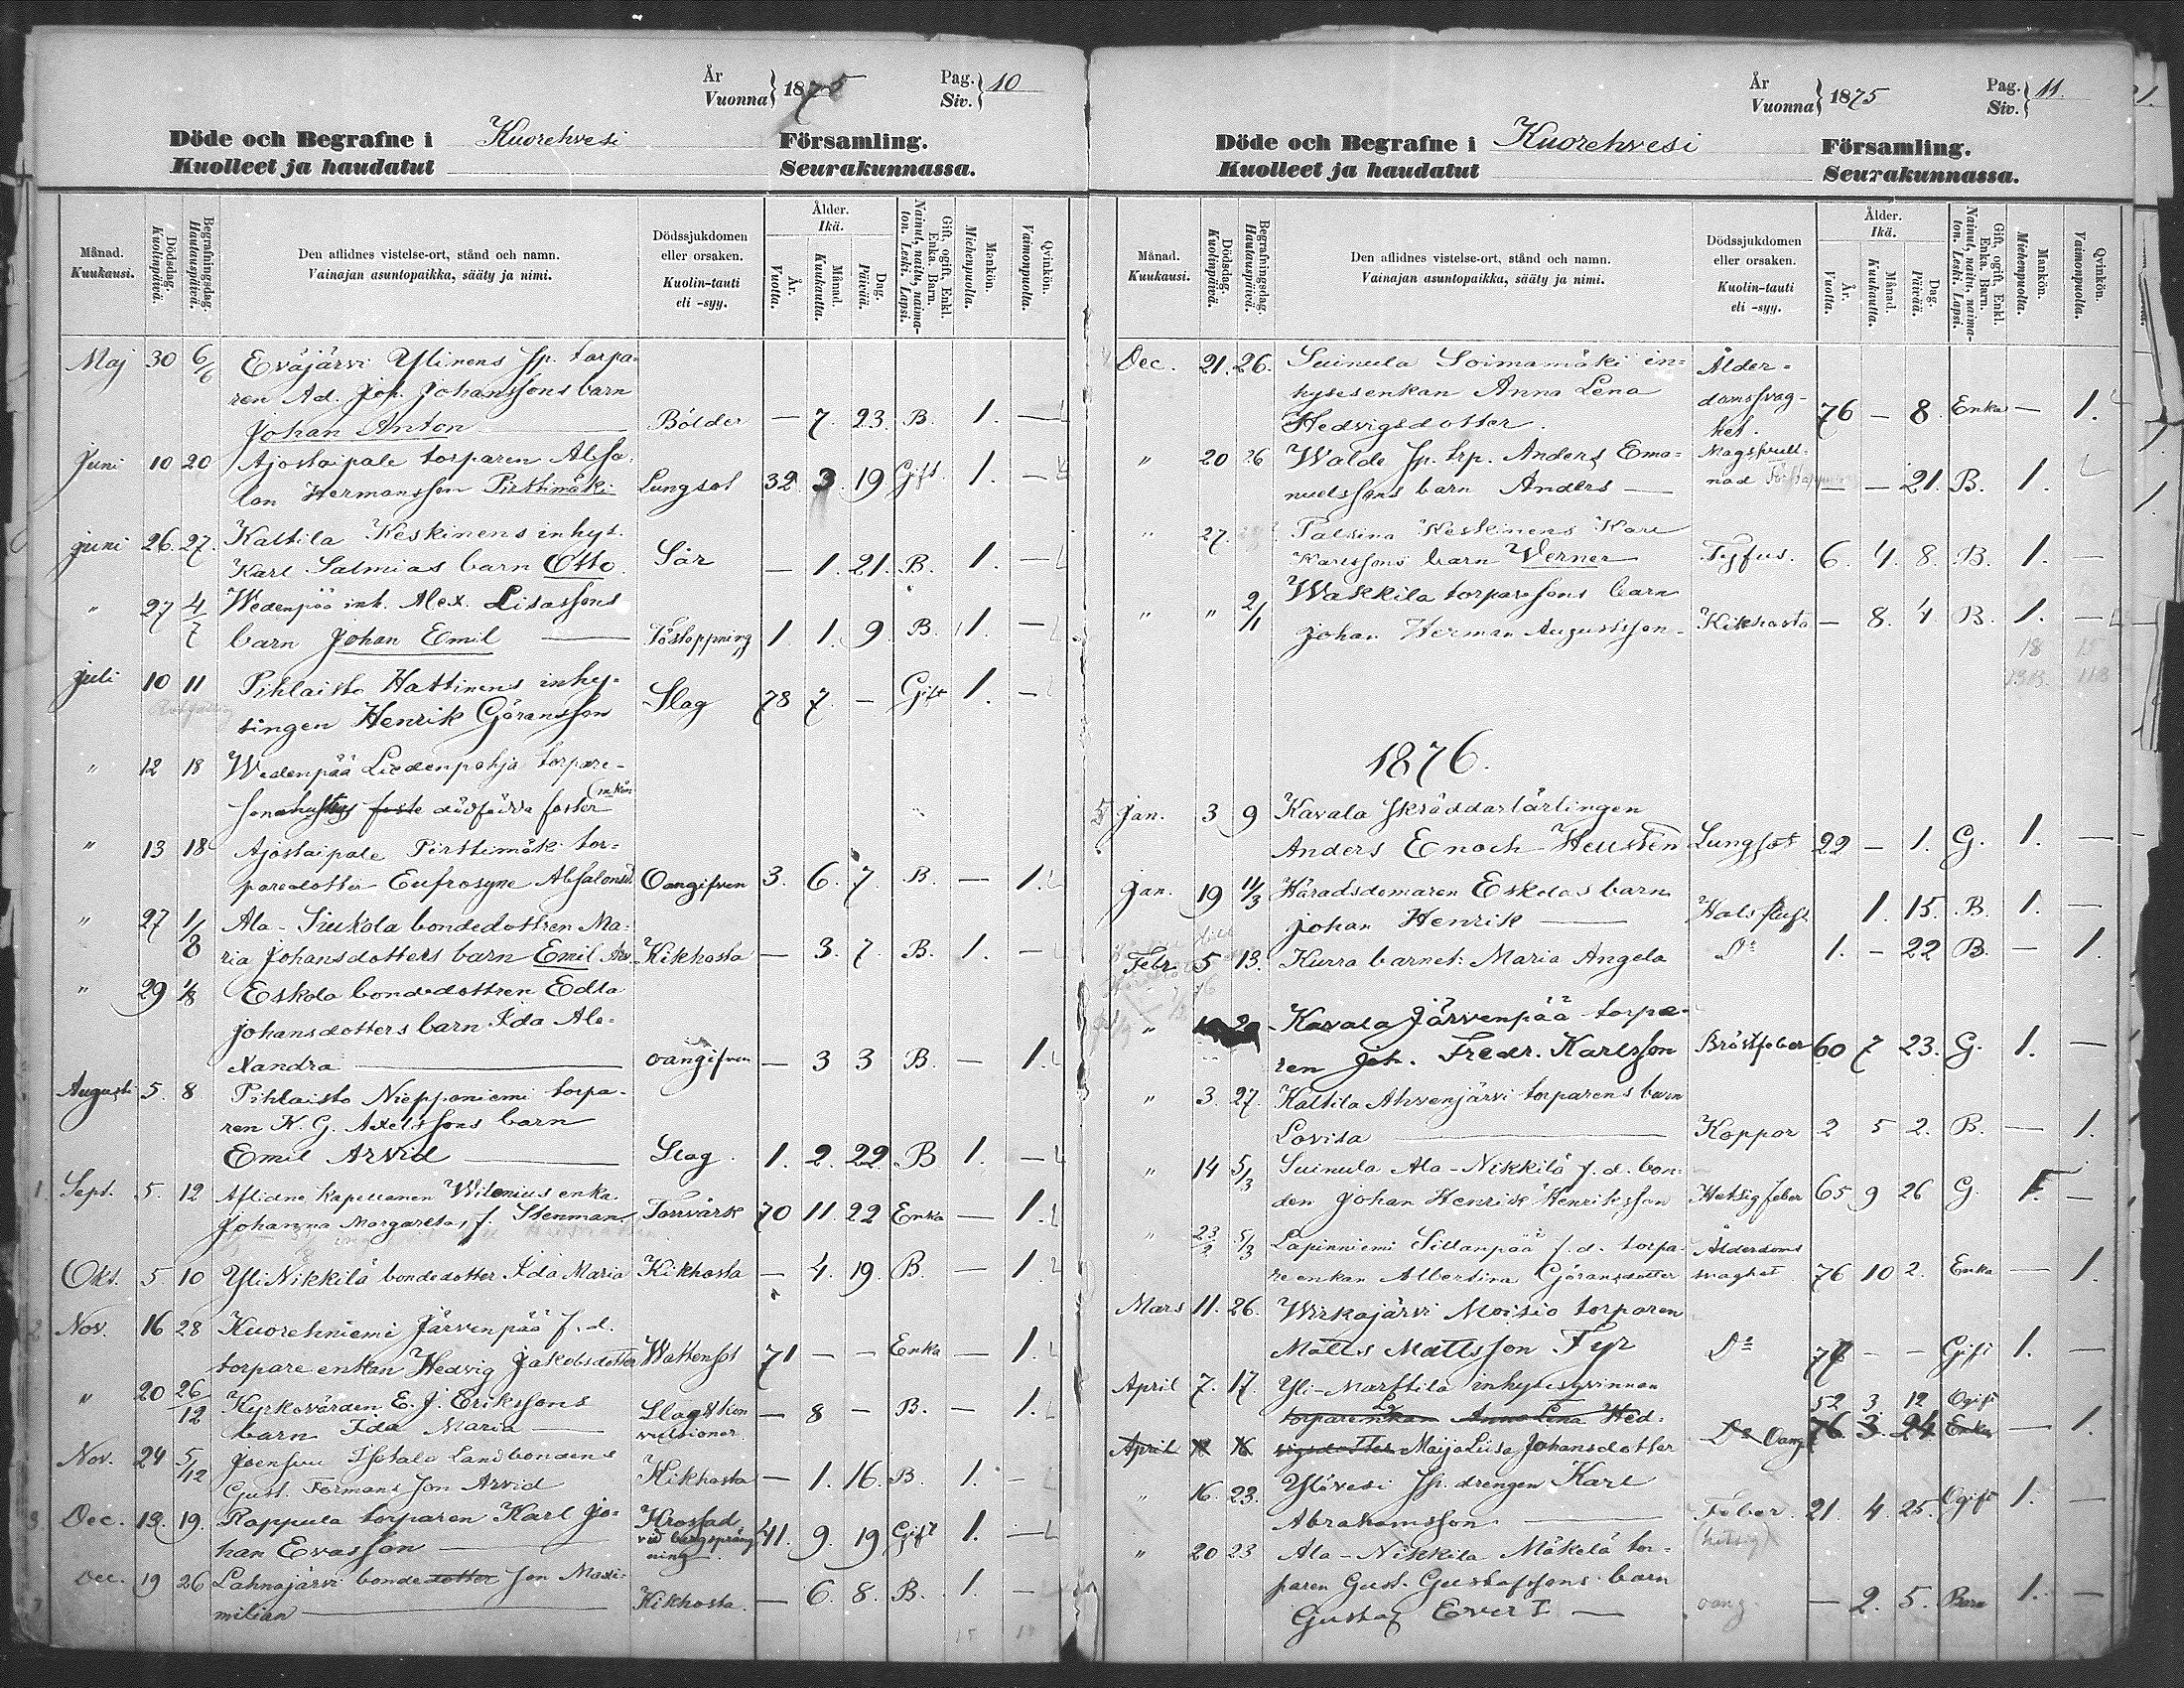 År
Vuonna } 1875
Pag.
Siv. } 10
Döde och Begrafne i Kuorehvesi Församling.
Kuolleet ja haudatut Seurakunnassa.
Månad. Kuukausi.
Dödsdag. Kuolinpäivä.
Begrafningsdag. Hautauspäivä.
Den aflidnes vistelse-ort, stånd och namn.
Vainajan asuntopaikka, sääty ja nimi.
Dödssjukdomen eller orsaken.
Kuolin-tauti eli -syy.
Ålder. Ikä.
År. Vuotta.
Månad. Kuukautta.
Dag. Päivää.
Gift, ogift, Enkl. Enka. Barn.
Nainut, naitu, naimaton. Leski. Lapsi.
Mankön. Miehenpuolta.
Qvinkön. Vaimonpuolta.
Maj 30 6/6 Eväjärvi Ylinens sp. torpa-
ren Ad. Joh. Johanssons barn
Johan Anton — Bölder — 7. 23. B. 1. —
Juni 10 20 Ajostaipale torparen Absa-
lon Hermansson Pirttimäki Lungsot 32 3 19 Gift. 1. —
juni 26. 27. Kaltila Keskinens inhys.
Karl Salmias barn Otto. Sår — 1. 21. B. 1. —
" 27 4/7 Wedenpää inh. Alex. Lisassons
barn Johan Emil — Töstoppning 1 1. 9. B. 1. —
juli 10 11 Pihlaisto Hattinens inhy-
singen Henrik Göransson Slag 78 7. — Gift 1. —
" 12 18 Wedenpää Liedenpohja torpare-
sonshustrus dödfödda foster mkön
" 13 18 Ajostaipale Pirttimäki tor-
paredotter Eufrosyne Absalonsd. Oangifven 3. 6. 7. B. — 1.
" 27 1/8 Ala-Siukola bondedottren Ma-
ria Johansdotters barn Emil Kikhosta — 3. 7. B. 1. —
" 29 1/8 Eskola bondedottren Edla
Johansdotters barn Ida Ale-
xandra — oangifven — 3 3 B. — 1.
Augusti 5. 8 Pihlaisto Niepponiemi torpa-
ren K. G. Axelssons barn
Emil Arvid — Slag. 1. 2. 22 B 1. —
1. Sept. 5. 12 Aflidne kapellanen Wilenius enka.
Johanna Margareta, f. Stenman. Torrvärk 70 11. 22 Enka — 1.
Okt. 5 10 Yli Nikkilä bondedotter Ida Maria Kikhosta — 4. 19. B. — 1
2 Nov. 16 28 Kuorehniemi Järvenpää f. d.
torpare enkan Hedvig Jakobsdotter Wattensot 71 — — Enka — 1.
" 20 26/12 Kyrkovärden E. J. Erikssons
barn Ida Maria — Slag & konvulsioner. — 8 — B. — 1.
Nov. 24 5/12 Joensuu Isotalo Landbondens
Gust. Formans son Arvid Kikhosta — 1. 16. B. 1. —
3 Dec. 13. 19. Rappula torparen Karl Jo-
han Evasson — Krossad vid bergsprängning. 41. 9. 19 Gift 1. —
Dec. 19 26 Lahnajärvi bondedotter son Maxi-
milian — Kikhosta. — 6. 8. B. 1. —
År
Vuonna } 1875
Pag.
Siv. } 11.
Döde och Begrafne i Kuorehvesi Församling.
Kuolleet ja haudatut Seurakunnassa.
Månad. Kuukausi.
Dödsdag. Kuolinpäivä.
Begrafningsdag. Hautauspäivä.
Den aflidnes vistelse-ort, stånd och namn.
Vainajan asuntopaikka, sääty ja nimi.
Dödssjukdomen eller orsaken.
Kuolin-tauti eli -syy.
Ålder. Ikä.
År. Vuotta.
Månad. Kuukautta.
Dag. Päivää.
Gift, ogift, Enkl. Enka. Barn.
Nainut, naitu, naimaton. Leski. Lapsi.
Mankön. Miehenpuolta.
Qvinkön. Vaimonpuolta.
Dec. 21. 26. Suinula Soimamäki in-
hysesenkan Anna Lena
Hedvigsdotter. Ålderdomssvaghet. 76 — 8. Enka — 1.
" 20 26 Walde sp. trp. Anders Ema-
nuelssons barn Anders — — — 21. B. 1.
" 27. Palsina Keskinens Karl
Karlssons barn Verner Tyfus. 6. 4. 8. B. 1. —
" " 2/1 Wakkila torparesons barn
Johan Herman Augustsson Kikhosta — 8. 4. B. 1. —
18 15
1876.
5 Jan. 3 9 Kavala skräddarlärlingen
Anders Enoch Heusten Lungsot 22 — 1. G. 1. —
Jan. 19 11/3 Häradsdomaren Eskolas barn
Johan Henrik — Halssjuk. 1. 15. B. 1. —
Febr. 5 13. Kurra barnet: Maria Angela Do 1. — 22 B. — 1.
" Kavala Järvenpää torpa-
ren Joh. Fredr. Karlsson Bröstfeber 60 7 23. G. 1. —
" 3. 27. Kaltila Ahvenjärvi torparens barn
Lovisa — Koppor 2 5 2. B. — 1.
" 14 5/3 Suinula Ala-Nikkilä f. d. bon-
den Johan Henrik Henriksson Hetsig feber 65 9 26 G. 1. —
" 23/2 5/3 Lapinniemi Sillanpää f. d. torpa-
re enkan Albertina Göransdotter Ålderdomssvaghet 76 10 2. Enka — 1.
Mars 11. 26. Wirkajärvi Moisio torparen
Matts Mattsson Fyr Do — — Gift 1. —
April 7. 17. Yli-Marttila inhysesqvinnan 52 3. 12 Ogift
torpareenkan Anna Lena Hed-
April 16 vigsdotter Maija Liisa Johansdotter Do Oang 76 3 24 Enka — 1.
" 16. 23. Ylövesi sp. drengen Karl
Abrahamsson — Feber (hitsig) 21. 4. 25. Ogift 1. —
" 20 23 Ala-Nikkila Mäkelä tor-
paren Gust. Gustafssons barn
Gustaf Evert — oang. — 2. 5. Barn 1. —